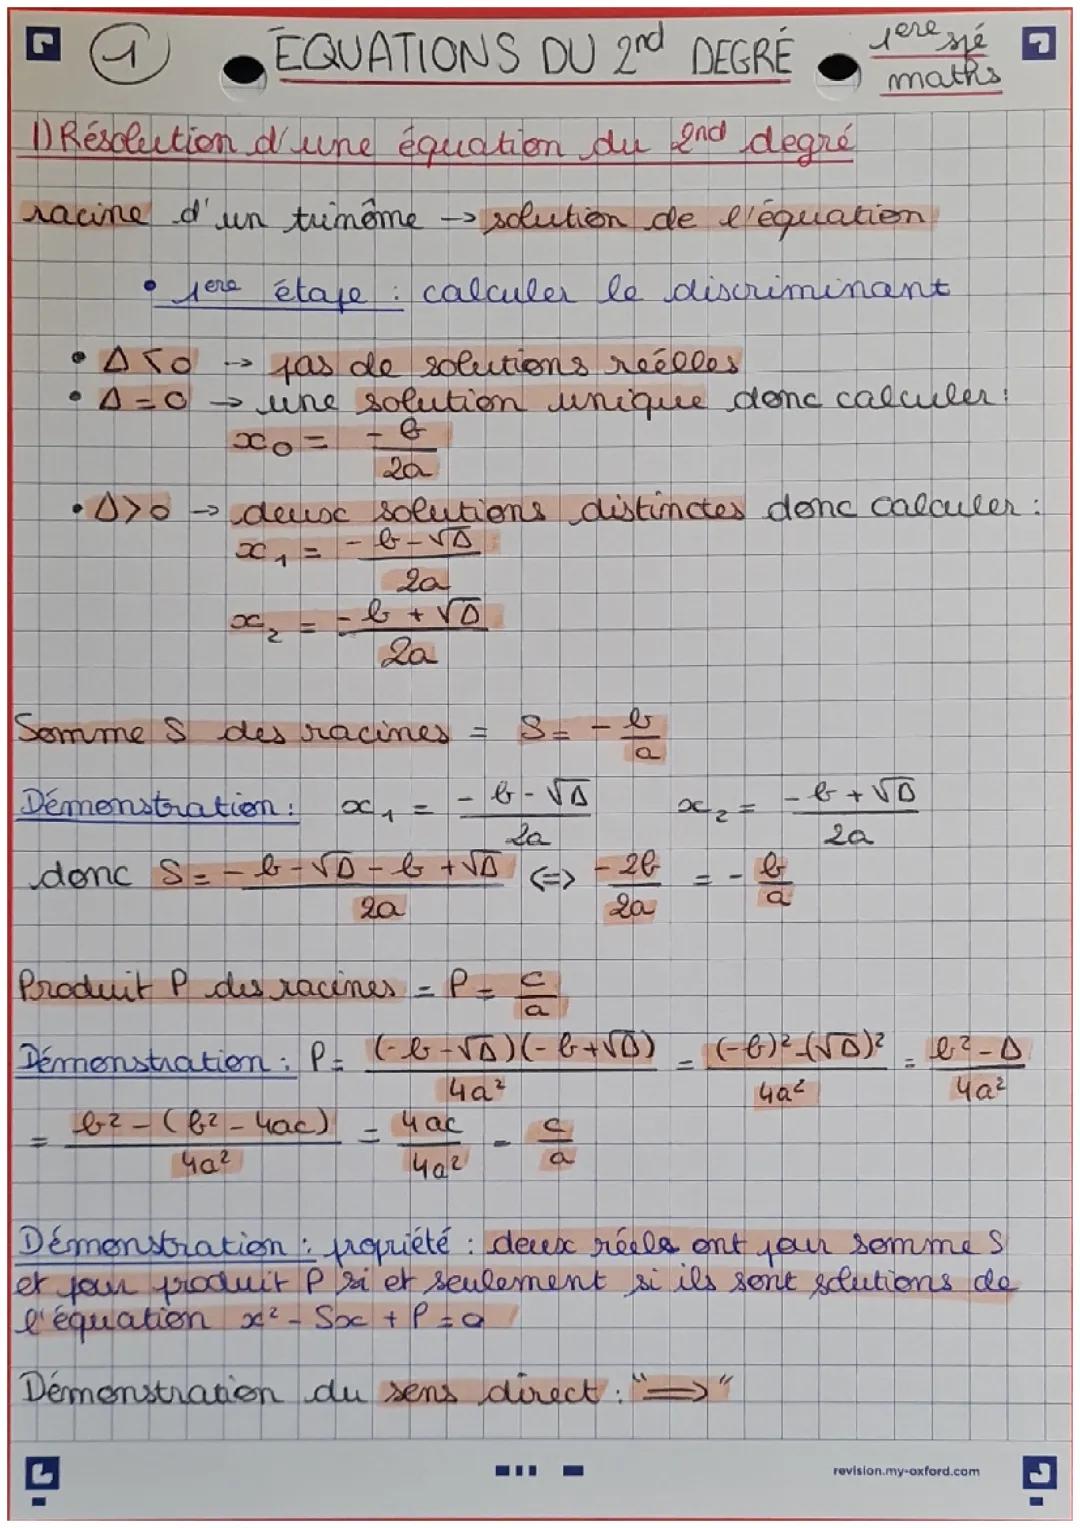 1 EQUATIONS DU 2nd DEGRÉ 1ere spé maths
1) Résolution d'une équation du 2nd degré
racine d'un trinôme → solution de l'équation
• 1ere étape : calculer le discriminant
• Δ < 0 → pas de solutions reélles
• Δ = 0 → une solution unique donc calculer :
x₀ = -b / 2a
• Δ > 0 → deux solutions distinctes donc calculer :
x₁ = (-b - √Δ) / 2a
x₂ = (-b + √Δ) / 2a
Somme S des racines = S = - b/a
Démonstration : x₁ = (-b - √Δ) / 2a x₂ = (-b + √Δ) / 2a
donc S = (-b - √Δ - b + √Δ) / 2a <=> -2b / 2a = - b/a
Produit P des racines = P = c/a
Démonstration : P = (-b - √Δ)(-b + √Δ) / 4a² = ((-b)² - (√Δ)²) / 4a² = (b² - Δ) / 4a²
= (b² - (b² - 4ac)) / 4a² = 4ac / 4a² = c/a
Démonstration : propriété : deux réels ont pour somme S
et pour produit P si et seulement si ils sont solutions de
l'équation x² - Sx + P = 0
Démonstration du sens direct : "⟹"
revision.my-oxford.com